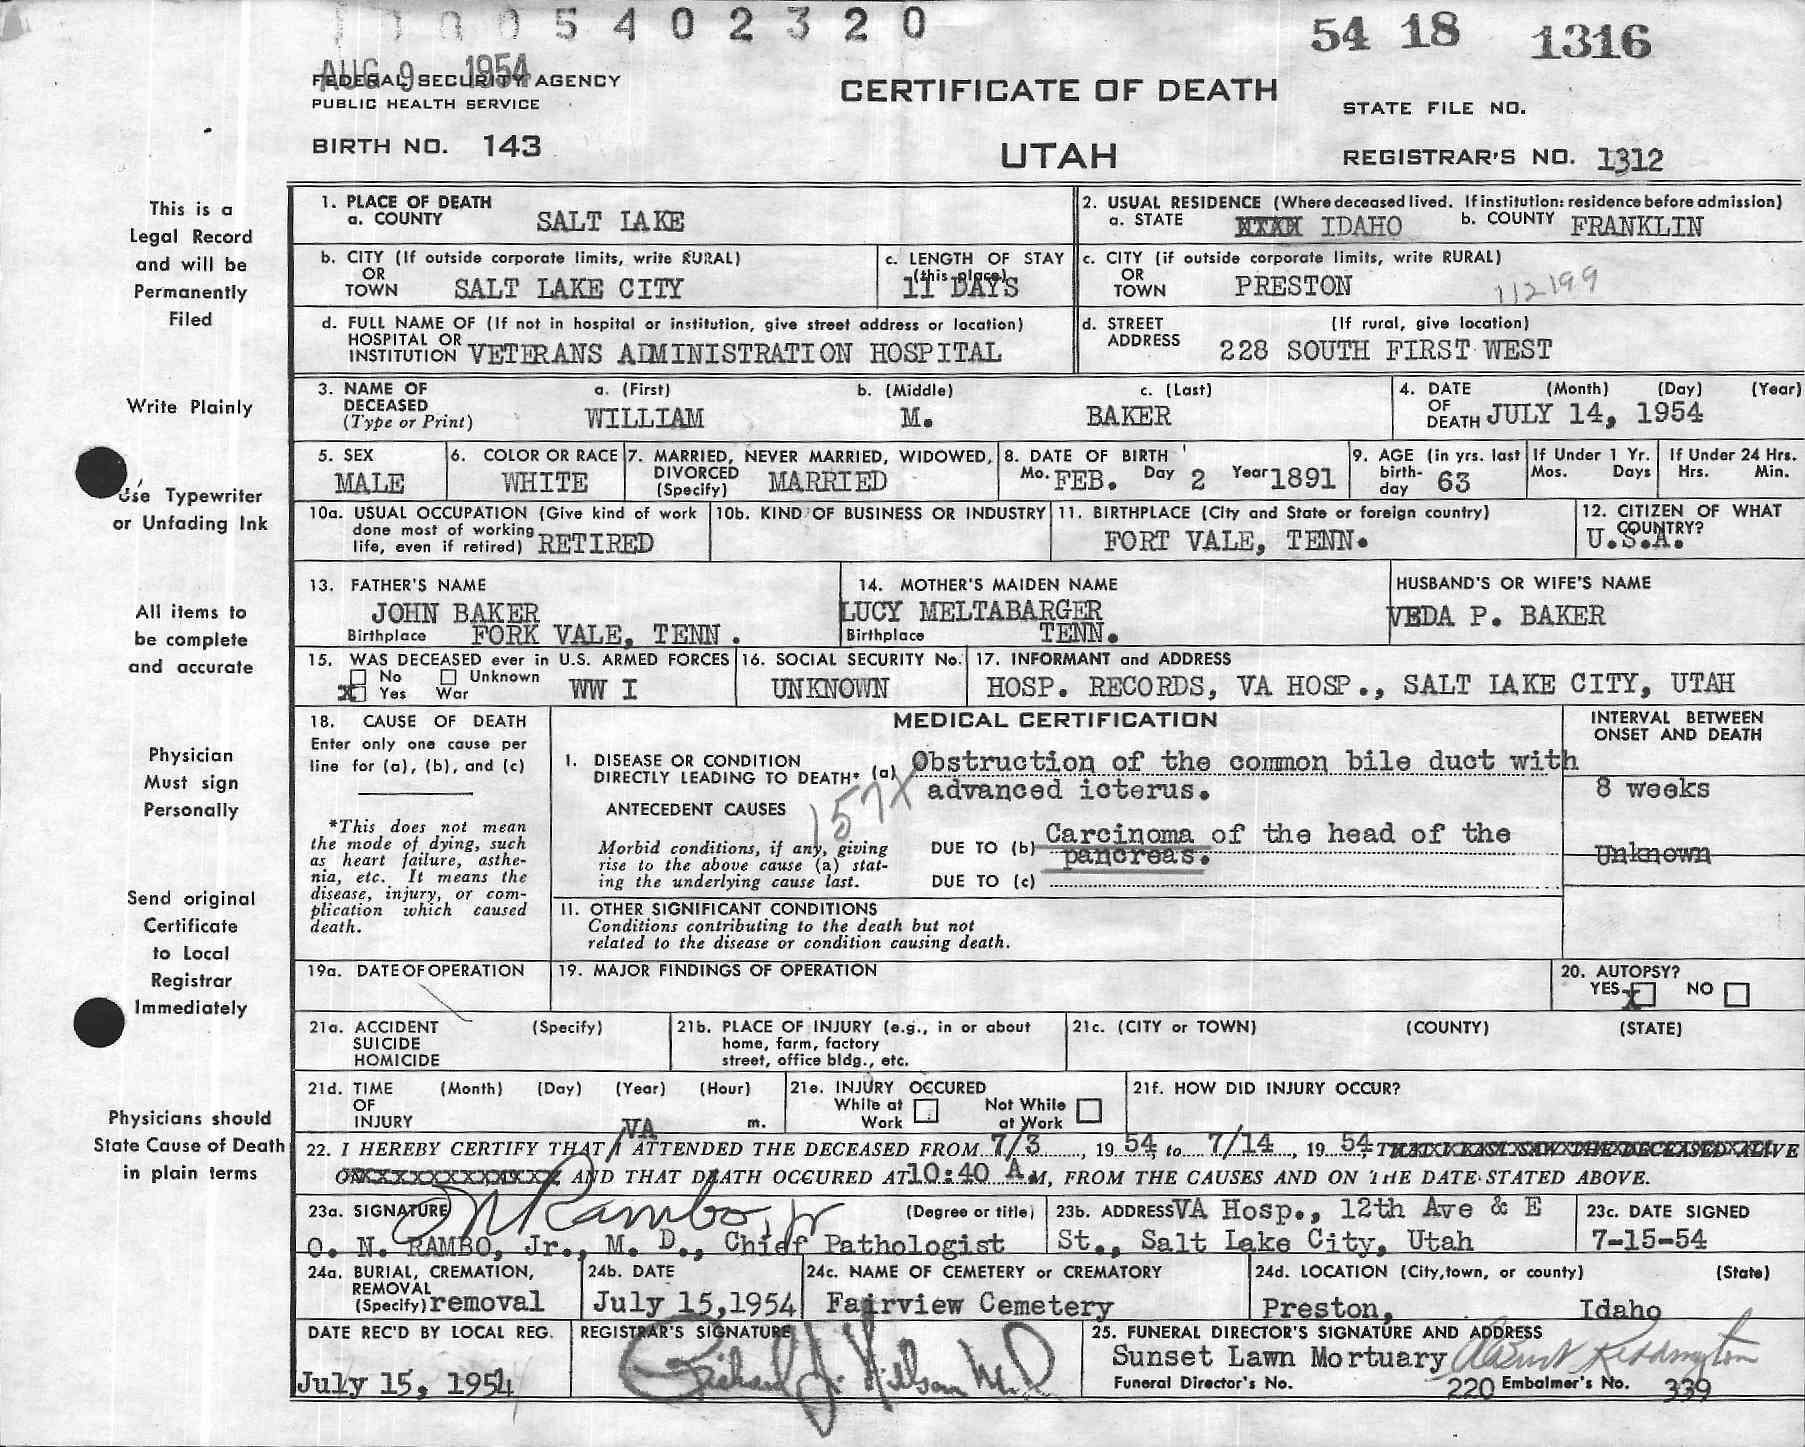 10005402320
54 18 1316
AUG 9 1954
FEDERAL SECURITY AGENCY
PUBLIC HEALTH SERVICE
CERTIFICATE OF DEATH
STATE FILE NO.
BIRTH NO. 143
UTAH
REGISTRAR'S NO. 1312
This is a
Legal Record
and will be
Permanently
Filed
Write Plainly
Use Typewriter
or Unfading Ink
All items to
be complete
and accurate
Physician
Must sign
Personally
Send original
Certificate
to Local
Registrar
Immediately
Physicians should
State Cause of Death
in plain terms
1. PLACE OF DEATH
a. COUNTY SALT LAKE
2. USUAL RESIDENCE (Where deceased lived. If institution: residence before admission)
a. STATE UTAH IDAHO b. COUNTY FRANKLIN
b. CITY (If outside corporate limits, write RURAL)
OR
TOWN SALT LAKE CITY
c. LENGTH OF STAY
(this place)
11 DAYS
c. CITY (if outside corporate limits, write RURAL)
OR
TOWN PRESTON 112199
d. FULL NAME OF (If not in hospital or institution, give street address or location)
HOSPITAL OR
INSTITUTION VETERANS ADMINISTRATION HOSPITAL
d. STREET (If rural, give location)
ADDRESS 228 SOUTH FIRST WEST
3. NAME OF a. (First) b. (Middle) c. (Last)
DECEASED
(Type or Print) WILLIAM M. BAKER
4. DATE (Month) (Day) (Year)
OF
DEATH JULY 14, 1954
5. SEX
MALE
6. COLOR OR RACE
WHITE
7. MARRIED, NEVER MARRIED, WIDOWED,
DIVORCED
(Specify) MARRIED
8. DATE OF BIRTH
Mo. FEB. Day 2 Year 1891
9. AGE (in yrs. last
birth-
day 63
If Under 1 Yr.
Mos. Days
If Under 24 Hrs.
Hrs. Min.
10a. USUAL OCCUPATION (Give kind of work
done most of working
life, even if retired) RETIRED
10b. KIND OF BUSINESS OR INDUSTRY
11. BIRTHPLACE (City and State or foreign country)
FORT VALE, TENN.
12. CITIZEN OF WHAT
COUNTRY?
U.S.A.
13. FATHER'S NAME
JOHN BAKER
Birthplace FORK VALE, TENN.
14. MOTHER'S MAIDEN NAME
LUCY MELTABARGER
Birthplace TENN.
HUSBAND'S OR WIFE'S NAME
VEDA P. BAKER
15. WAS DECEASED ever in U.S. ARMED FORCES
No Unknown
x Yes War WW I
16. SOCIAL SECURITY No.
UNKNOWN
17. INFORMANT and ADDRESS
HOSP. RECORDS, VA HOSP., SALT LAKE CITY, UTAH
18. CAUSE OF DEATH
Enter only one cause per
line for (a), (b), and (c)
*This does not mean
the mode of dying, such
as heart failure, asthe-
nia, etc. It means the
disease, injury, or com-
plication which caused
death.
MEDICAL CERTIFICATION
INTERVAL BETWEEN
ONSET AND DEATH
I. DISEASE OR CONDITION
DIRECTLY LEADING TO DEATH* (a) Obstruction of the common bile duct with
advanced icterus.
8 weeks
ANTECEDENT CAUSES
157X
Morbid conditions, if any, giving
rise to the above cause (a) stat-
ing the underlying cause last.
DUE TO (b) Carcinoma of the head of the
pancreas.
Unknown
DUE TO (c)
II. OTHER SIGNIFICANT CONDITIONS
Conditions contributing to the death but not
related to the disease or condition causing death.
19a. DATE OF OPERATION
19. MAJOR FINDINGS OF OPERATION
20. AUTOPSY?
YES x NO
21a. ACCIDENT (Specify)
SUICIDE
HOMICIDE
21b. PLACE OF INJURY (e.g., in or about
home, farm, factory
street, office bldg., etc.
21c. (CITY or TOWN) (COUNTY) (STATE)
21d. TIME (Month) (Day) (Year) (Hour)
OF
INJURY m.
21e. INJURY OCCURED
While at Not While
Work at Work
21f. HOW DID INJURY OCCUR?
VA
22. I HEREBY CERTIFY THAT I ATTENDED THE DECEASED FROM 7/3, 1954 to 7/14, 1954 THAT I LAST SAW THE DECEASED ALIVE
ON XXXXXXXXXX 19XX, AND THAT DEATH OCCURED AT 10:40 A M, FROM THE CAUSES AND ON THE DATE STATED ABOVE.
23a. SIGNATURE ON Rambo, Jr (Degree or title)
O. N. RAMBO, Jr., M. D., Chief Pathologist
23b. ADDRESS VA Hosp., 12th Ave & E
St., Salt Lake City, Utah
23c. DATE SIGNED
7-15-54
24a. BURIAL, CREMATION,
REMOVAL
(Specify) removal
24b. DATE
July 15, 1954
24c. NAME OF CEMETERY or CREMATORY
Fairview Cemetery
24d. LOCATION (City, town, or county) (State)
Preston, Idaho
DATE REC'D BY LOCAL REG.
July 15, 1954
REGISTRAR'S SIGNATURE
Richard J. Nelson M.D.
25. FUNERAL DIRECTOR'S SIGNATURE AND ADDRESS
Sunset Lawn Mortuary
Funeral Director's No. 220 Embalmer's No. 339